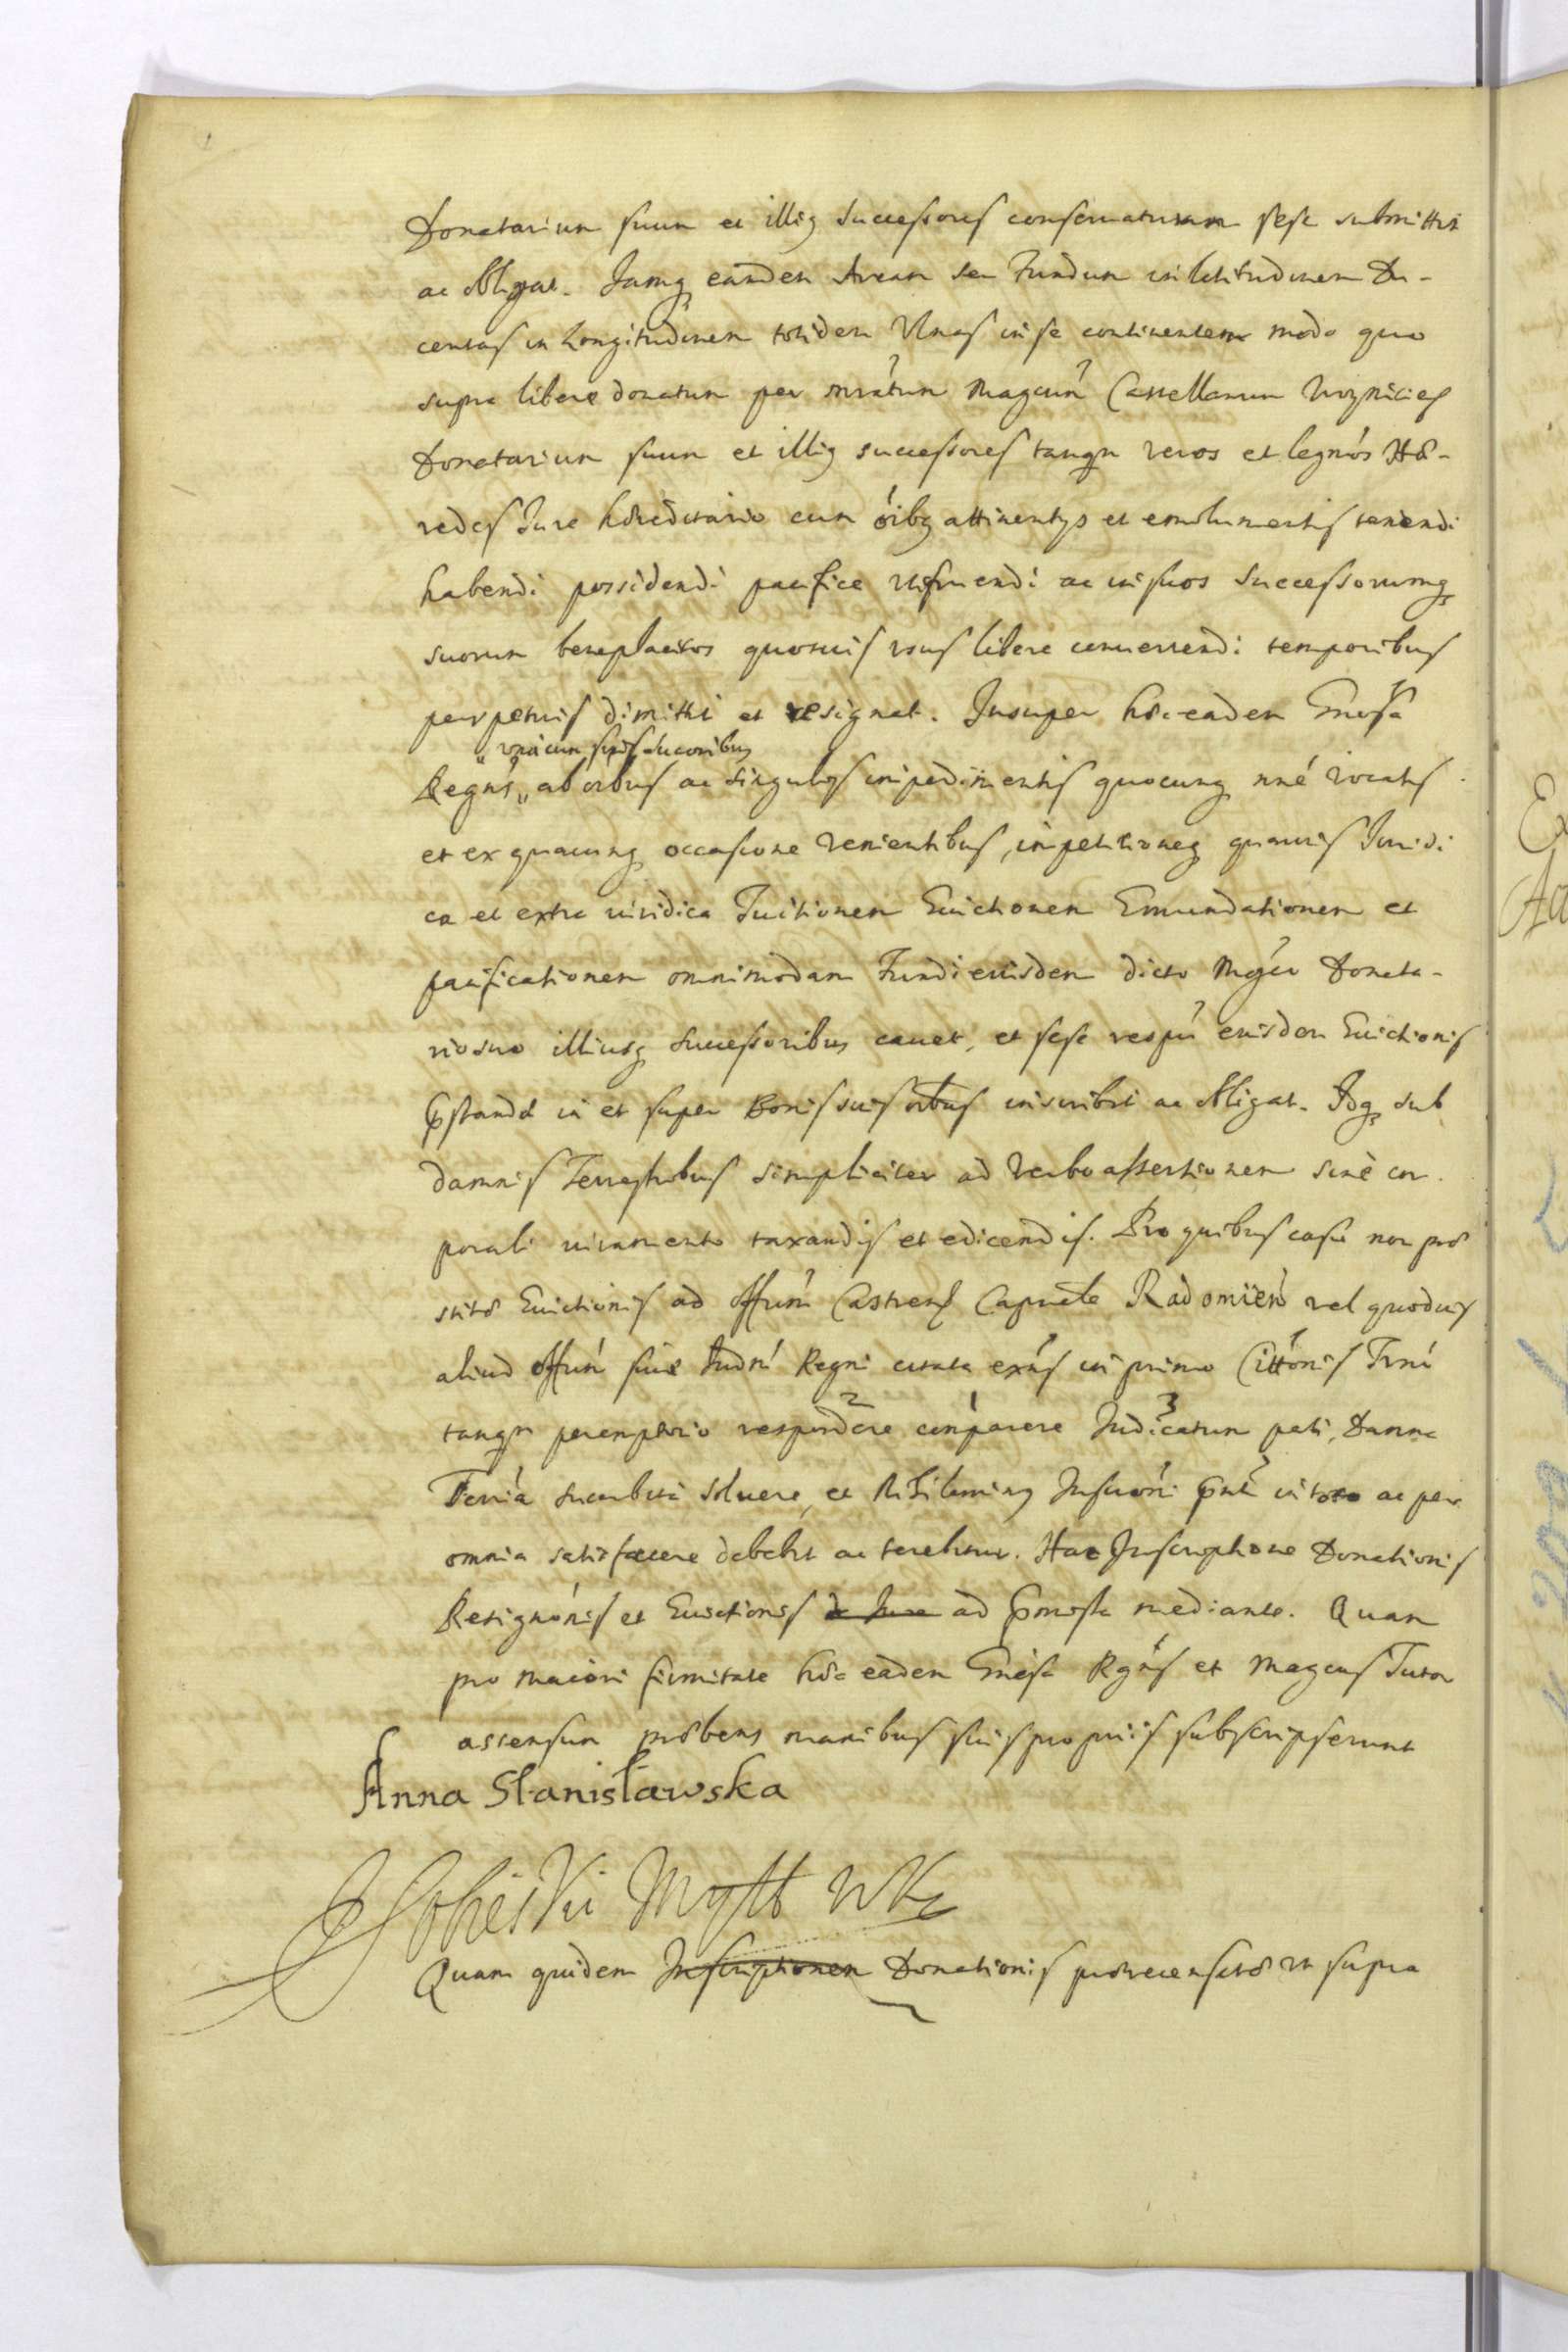 Donatarium suum et illiq successores conseruaturam sese submittit
ac obligat. Jamq eandem Aream seu Fundum in latitudinem Du-
centas in Longitudinem totidem Vlnas in se continentem modo quo
supra libere donatum per mratum Magcum Castellanum Woynicien
Donatarium suum et illiq successores tanqm veros et legmos Hæ-
redes Jure hæreditario cum oibq attinentys et emolumentis tenendi
habendi possidendi pacifice utifruendi ac in suos Successorumq
suorum beneplacitos quosuis usus libere conuertendi temporibus
perpetuis dimittit et resignat. Insuper hæc eadem Gnosa
" vnacum suis sucoribus
Regns " ab oibus ac singulis impedimentis quocunq nne vocatis
et ex quacunq occasione venientibus, impetitioneq quauis Juridi
ca et extra iuridica Tuitionem Euictionem Emundationem et
pacificationem omnimodam Fundi eiusdem dicto Mgco Donata-
rio suo illiusq Successoribus cauet, et sese respu eiusdem Euictionis
pstandæ in et super Bonis suis oibus inscribit ac obligat. Idq sub
damnis Terrestribus simpliciter ad verbo assertionem sine cor.
porali iuramento taxandis et edicendis. Pro quibus casu non præ
stitæ Euictionis ad Offum Castren Capnale Radomien vel quoduis
aliud Offum siue Judm Regni citata exns in primo Cittonis Trno
tanqm peremptorio respondere 2 comparere 1 Judicatum 3 pati, Damna
Terria succubita soluere, et nihilominq Inscroni pnti in toto ac per
omnia satisfacere debebit ac tenebitur. Hac Inscriptione Donationis
Resignonis et Euictionis de Jure ad pmissa mediante. Quam
pro maiori firmitate hæc eadem Gnosa Rgns et Magcus Tutor
assensum præbens manibus suis propriis subscripserunt
Anna Stanisławska
Sobieski
Quam quidem Inscriptionem Donationis prærecensitæ ut supra